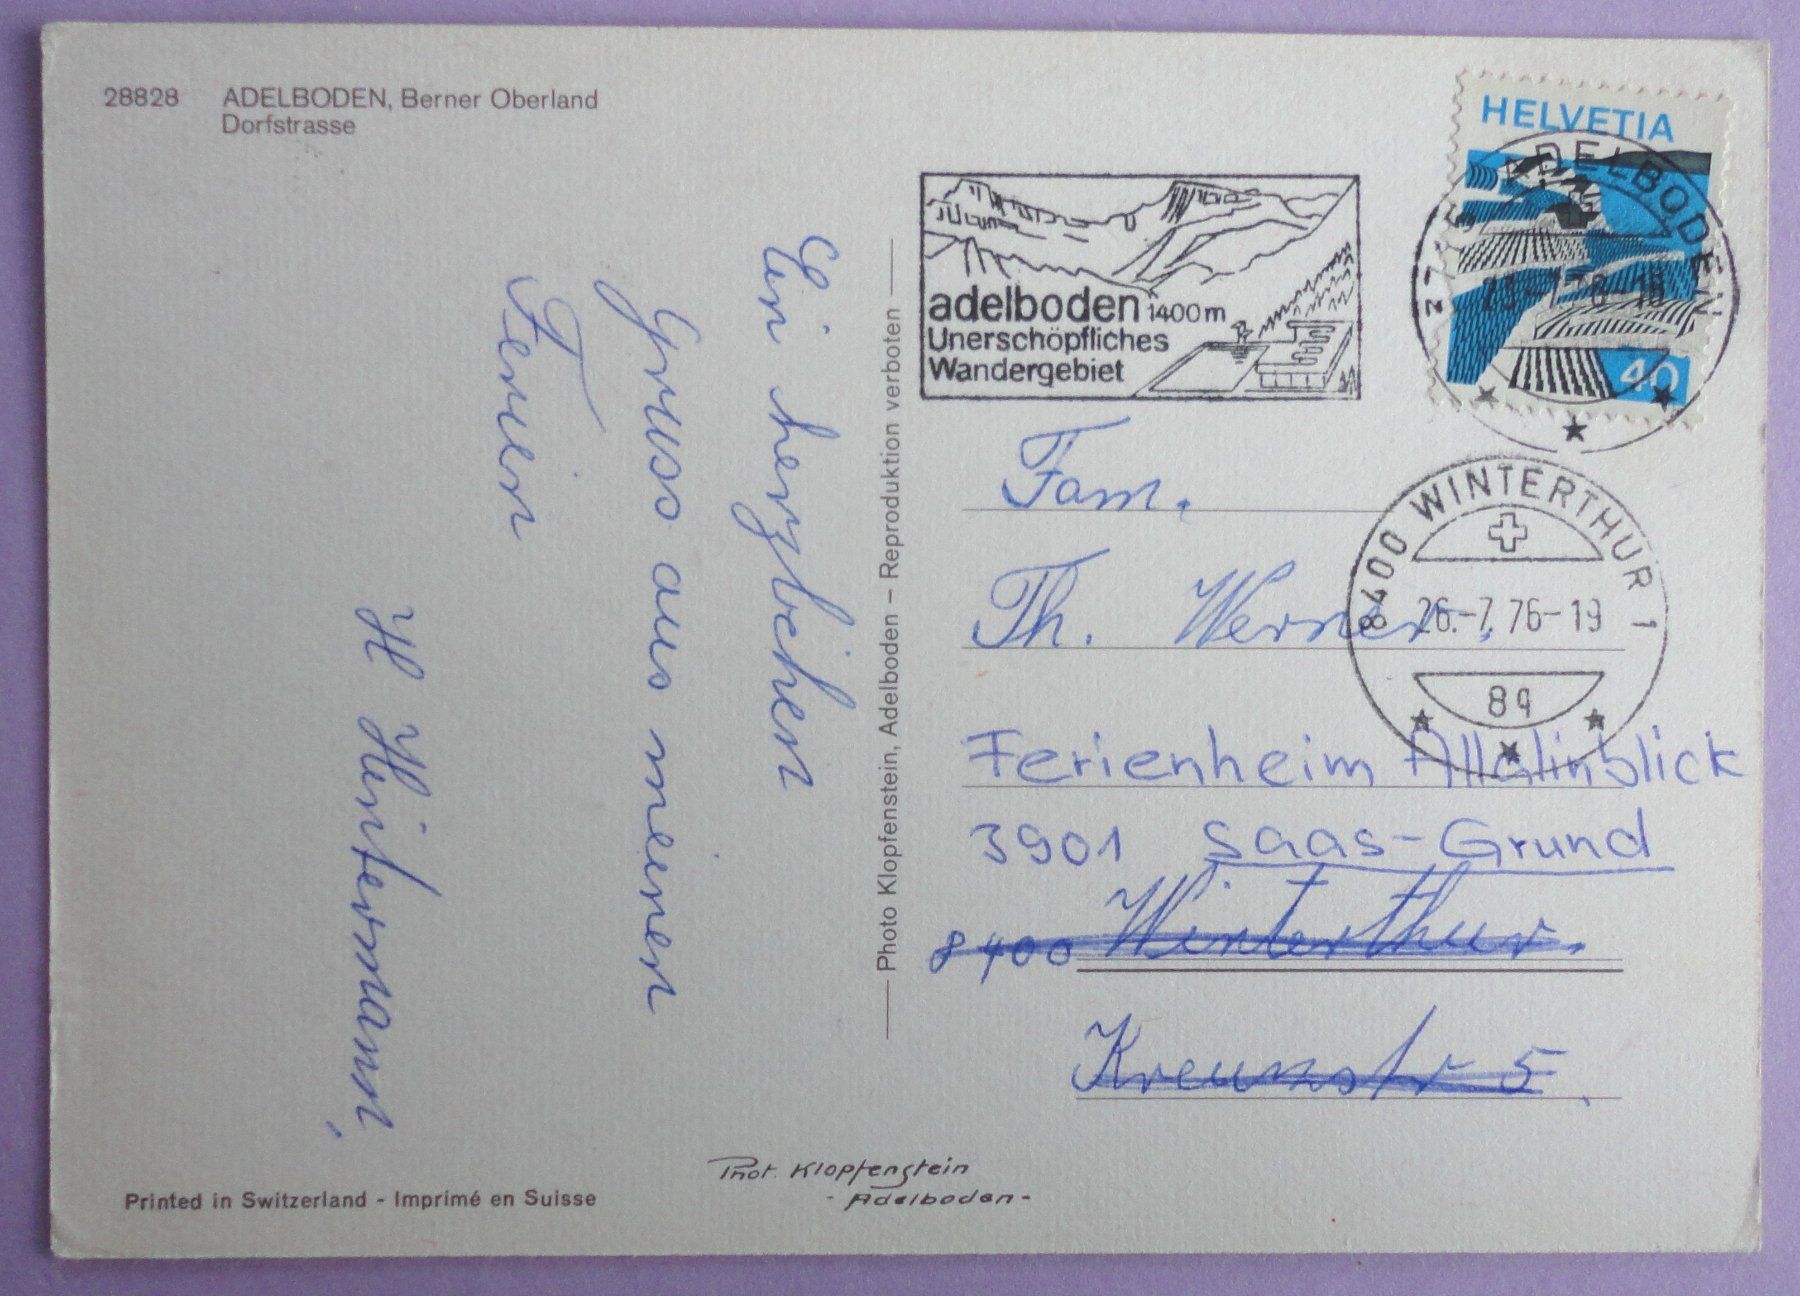 28828 ADELBODEN, Berner Oberland
Dorfstrasse
Ein herzlichen
Gruss aus meinen
Ferien
H Hintermann,
Photo Klopfenstein, Adelboden – Reproduktion verboten
adelboden 1400m
Unerschöpfliches
Wandergebiet
HELVETIA
40
ADELBODEN
8400 WINTERTHUR 1
26.-7.76-19
89
Fam.
Th. Werner.
Ferienheim Allalinblick
3901 Saas-Grund
8400 Winterthur.
5
Phot. Klopfenstein
- Adelboden -
Printed in Switzerland - Imprimé en Suisse